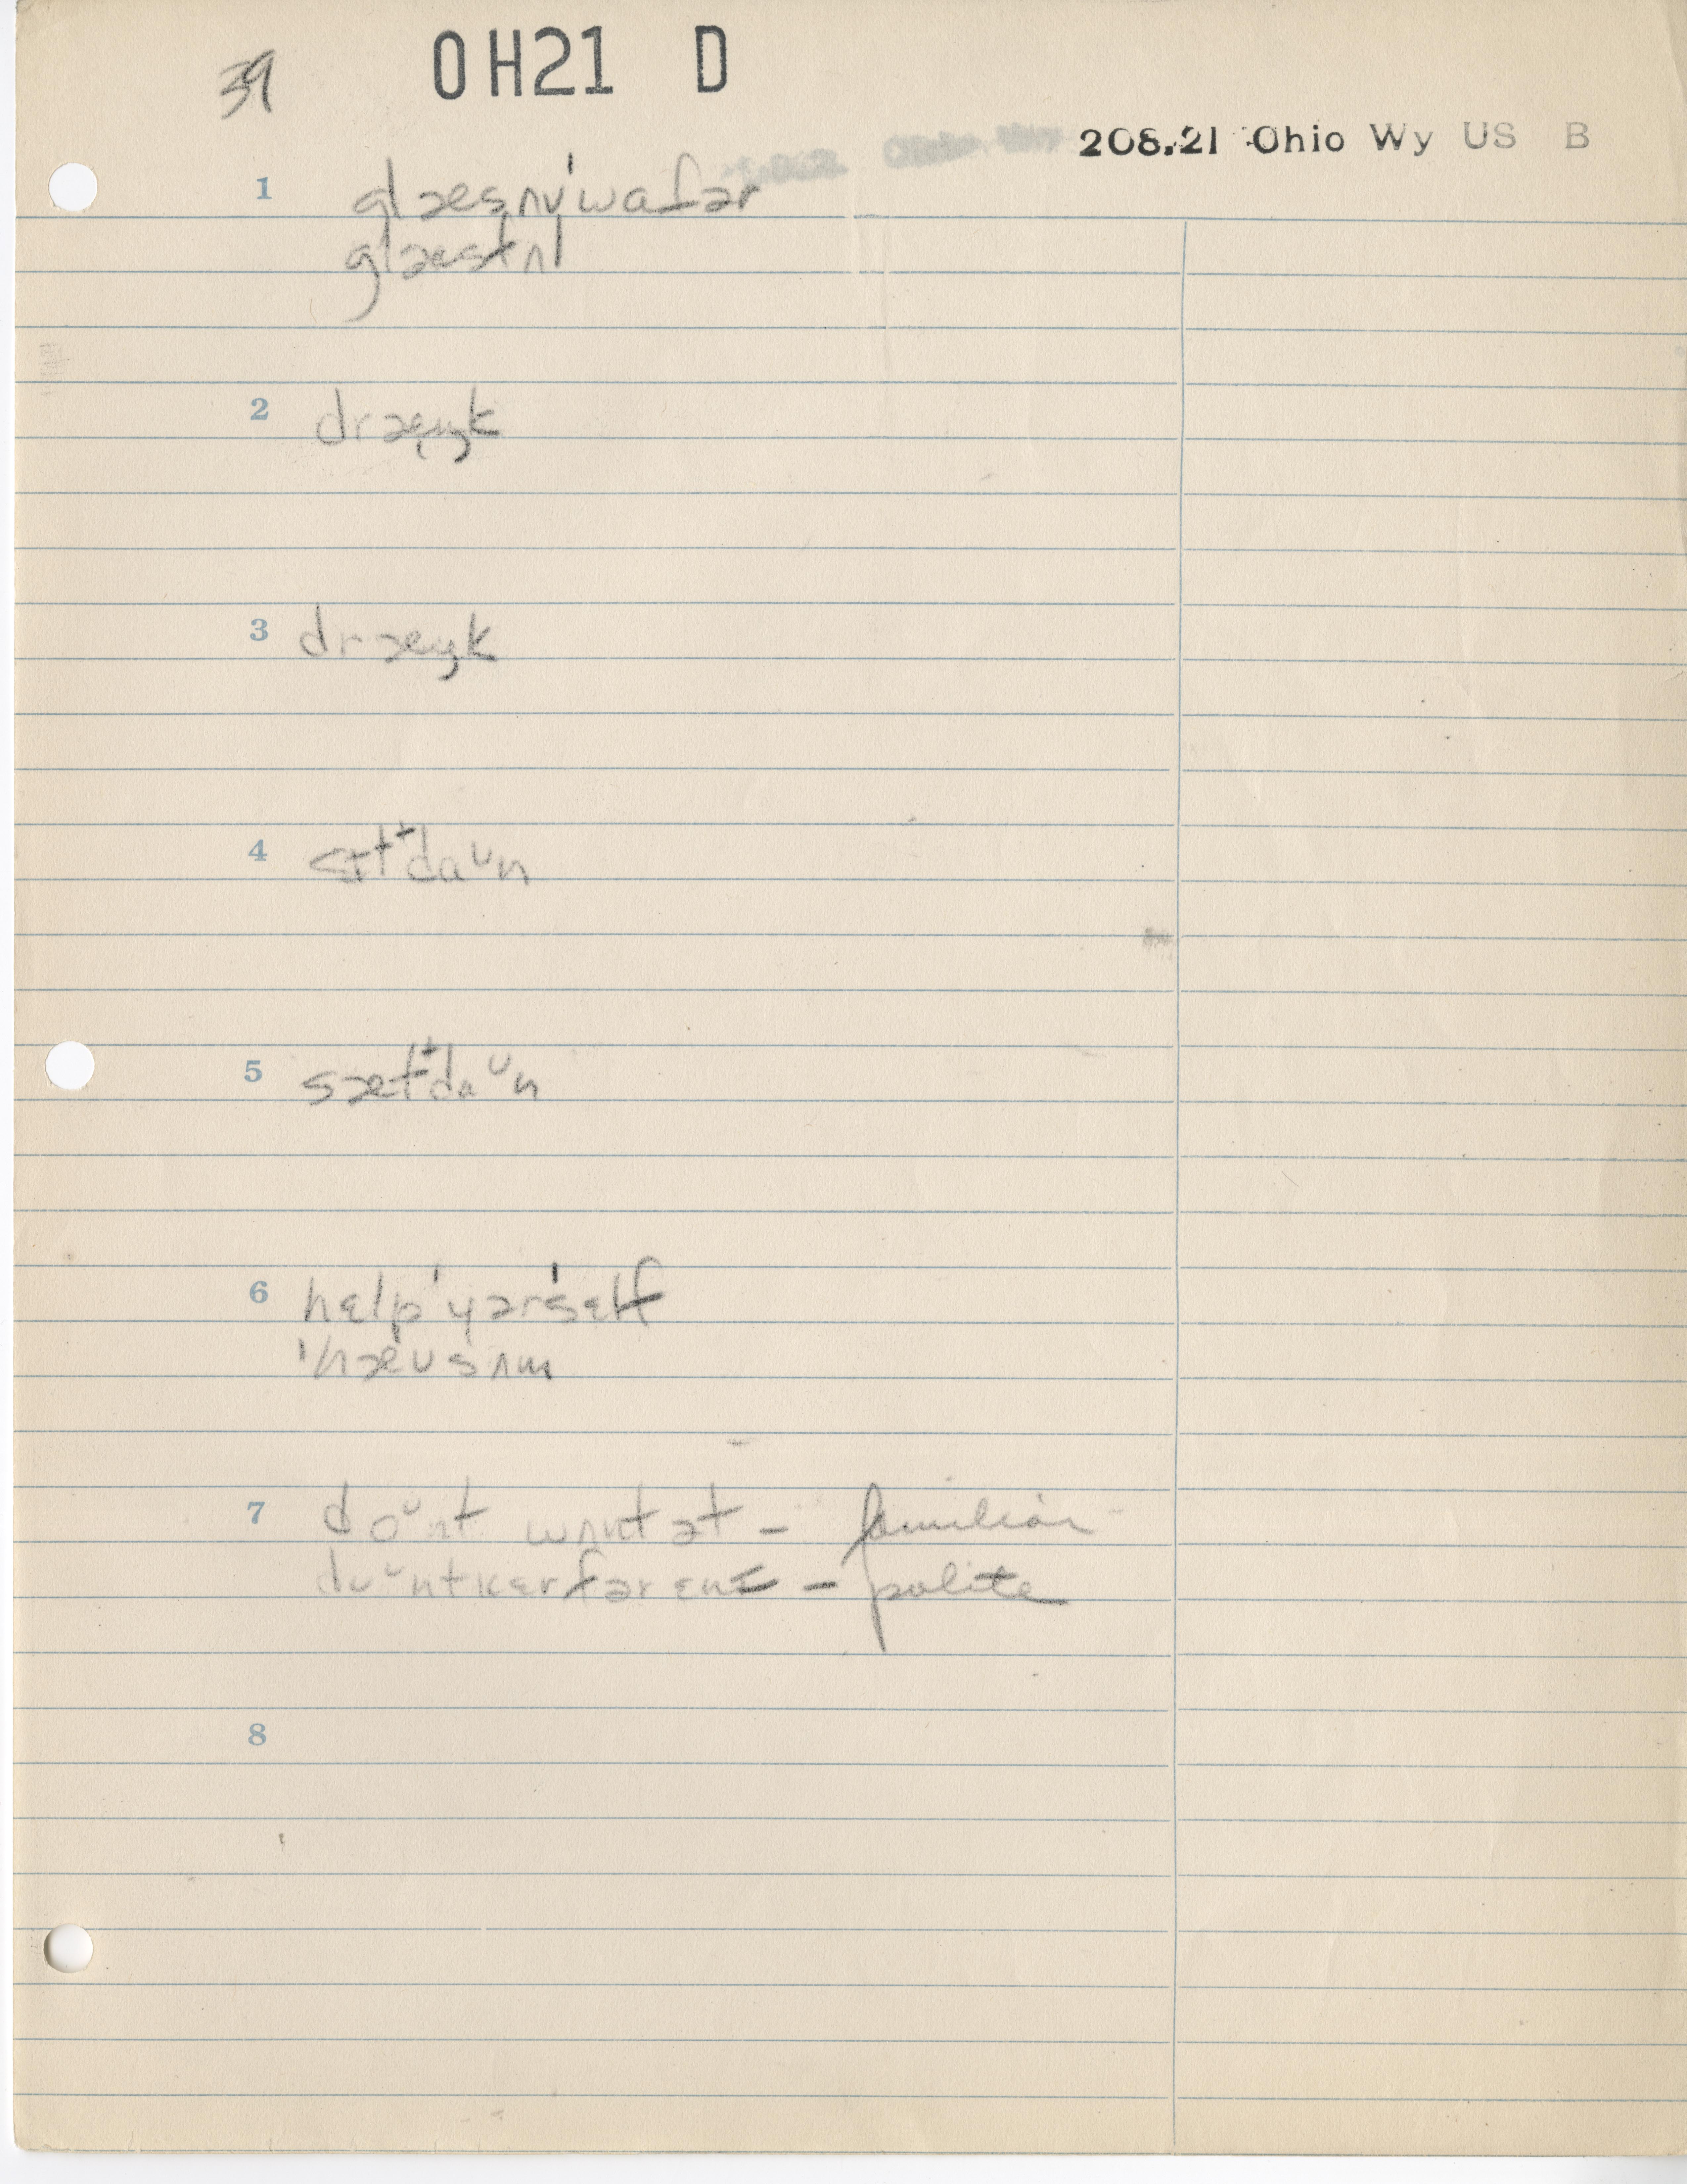 39 OH21 D
208.21 Ohio Wy US B
1 glæsʌv'wɑtər
glæstʌl
2 dræŋk
3 dræŋk
4 sɪt daᴜn
5 sæt daᴜn
6 hɛlp'yər'sɛlf
'hævsʌm
7 doᴜnt wʌntət – familiar
doᴜntkɛrfərɛnɪ – polite
8